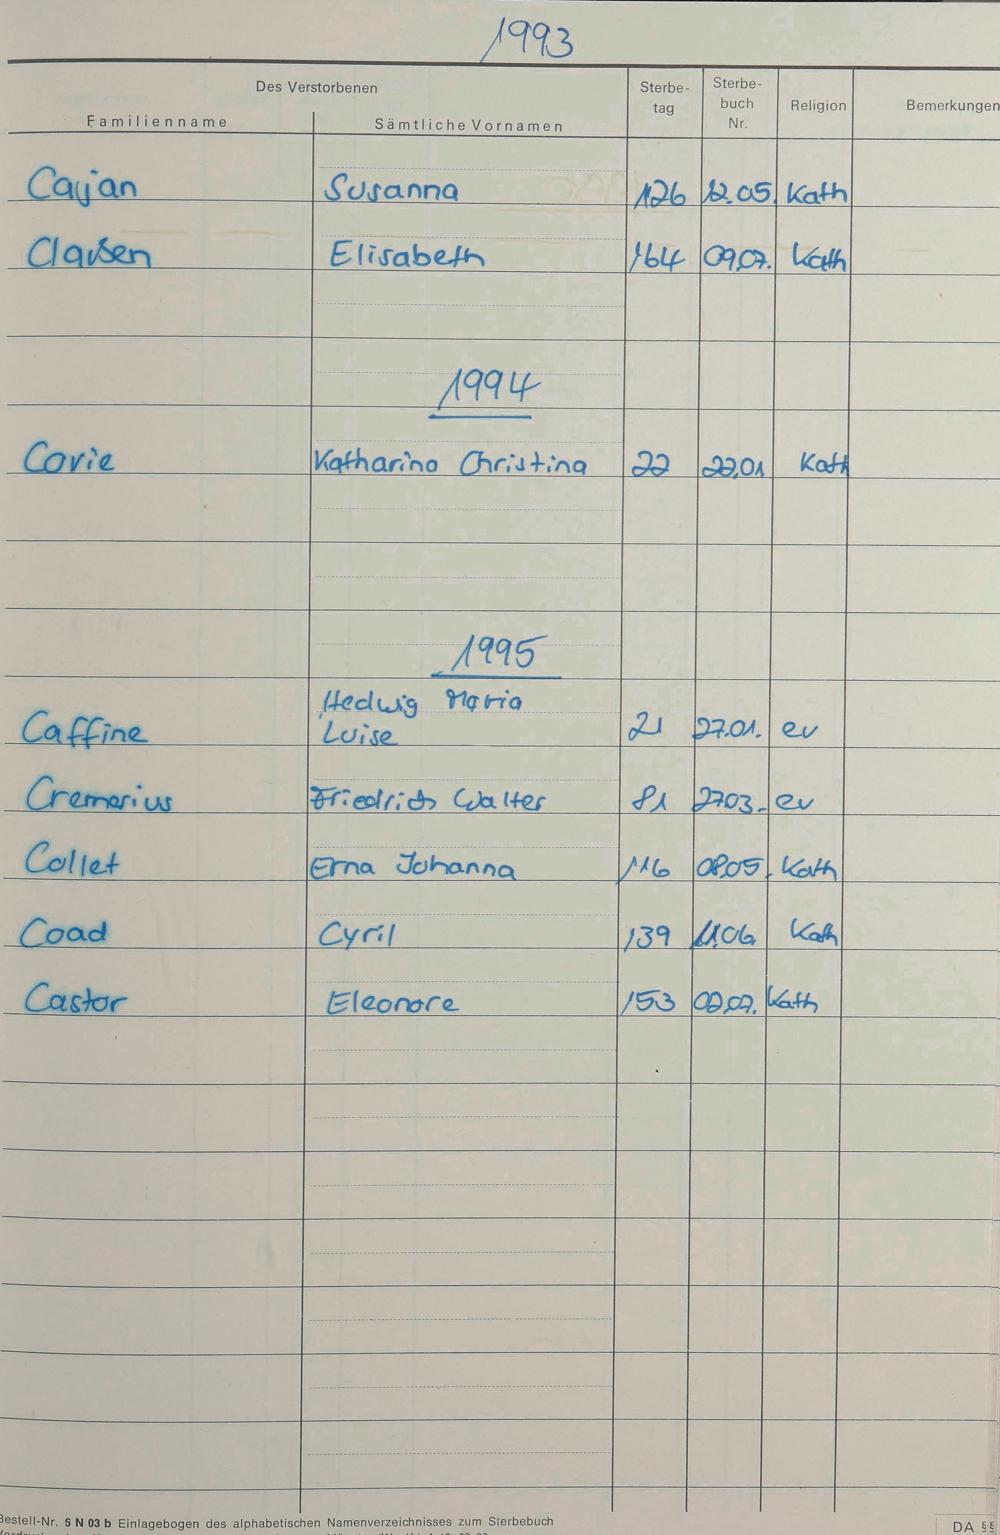 1993
Des Verstorbenen
Familienname Sämtliche Vornamen Sterbe-tag Sterbe-buch Nr. Religion Bemerkungen
Cayan Susanna 126 12.05. Kath
Clausen Elisabeth 164 09.07. Kath
1994
Corie Katharina Christina 22 22.01 Kath
1995
Hedwig Maria
Caffine Luise 21 27.01. ev
Cremerius Friedrich Walter 81 27.03. ev
Collet Erna Johanna 116 08.05. Kath
Coad Cyril 139 11.06. Kath
Castor Eleonore 153 02.07. Kath
Bestell-Nr. S N 03 b Einlagebogen des alphabetischen Namenverzeichnisses zum Sterbebuch
DA §§